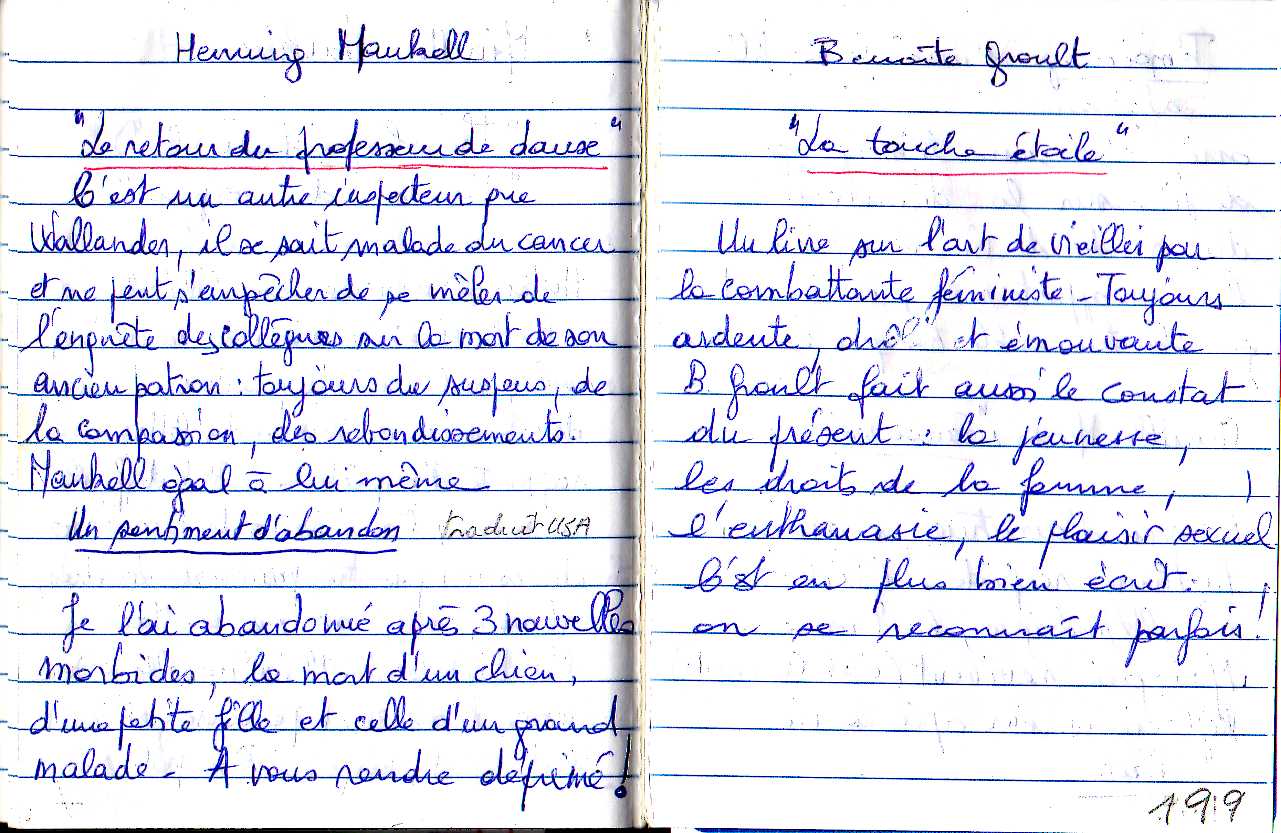 Henning Mankell
"Le retour du professeur de danse"
C'est un autre inspecteur que
Wallander, il se sait malade du cancer
et ne peut s'empêcher de se mêler de
l'enquête des collègues sur la mort de son
ancien patron : toujours du suspens, de
la compassion, des rebondissements.
Mankell égal à lui même
Un sentiment d'abandon traduit USA
Je l'ai abandonné après 3 nouvelles
morbides, la mort d'un chien,
d'une petite fille et celle d'un grand
malade - A vous rendre déprimé !
Benoîte Groult
"La touche étoile"
Un livre sur l'art de vieillir par
la combattante féministe - Toujours
ardente, et émouvante
B Groult fait aussi le constat
du présent : la jeunesse,
les droits de la femme,
l'euthanasie, le plaisir sexuel
C'est en plus bien écrit.
on se reconnaît parfois !
199